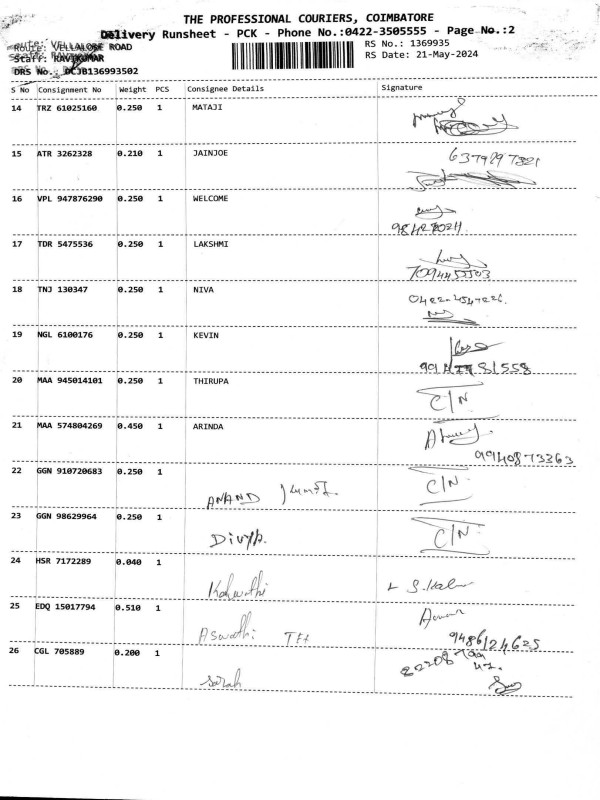 THE PROFESSIONAL COURIERS, COIMBATORE
Delivery Runsheet - PCK - Phone No.:0422-3505555 - Page No.:2
Route: VELLALORE ROAD
RS No.: 1369935
Staff: RAVIKUMAR
RS Date: 21-May-2024
DRS No.: DCJB136993502
S No Consignment No Weight PCS Consignee Details Signature
14 TRZ 61025160 0.250 1 MATAJI
15 ATR 3262328 0.210 1 JAINJOE
16 VPL 947876290 0.250 1 WELCOME
17 TDR 5475536 0.250 1 LAKSHMI
18 TNJ 130347 0.250 1 NIVA
19 NGL 6100176 0.250 1 KEVIN
20 MAA 945014101 0.250 1 THIRUPA
C/N
21 MAA 574804269 0.450 1 ARINDA
9940873363
22 GGN 910720683 0.250 1
ANAND C/N
23 GGN 98629964 0.250 1
Divya. C/N
24 HSR 7172289 0.040 1
25 EDQ 15017794 0.510 1
Aswathi
9486124625
26 CGL 705889 0.200 1
Sarah